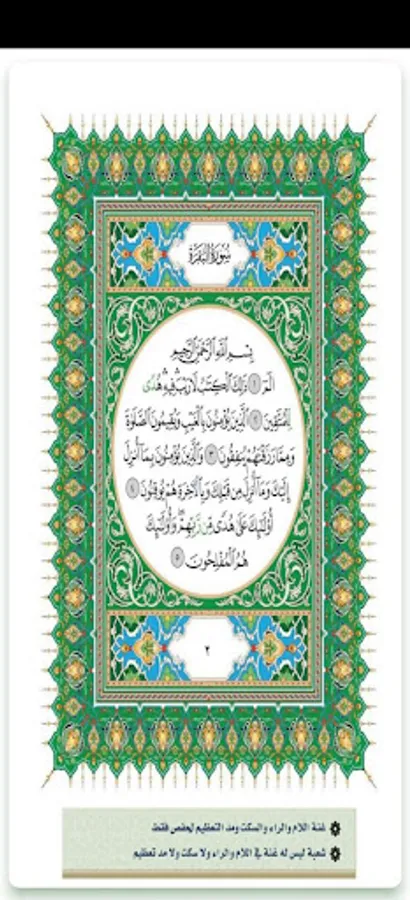 سُورَةُ ٱلْبَقَرَةِ
بِسْمِ ٱللَّهِ ٱلرَّحْمَٰنِ ٱلرَّحِيمِ
الٓمٓ ١ ذَٰلِكَ ٱلْكِتَٰبُ لَا رَيْبَ ۛ فِيهِ ۛ هُدًى
لِّلْمُتَّقِينَ ٢ ٱلَّذِينَ يُؤْمِنُونَ بِٱلْغَيْبِ وَيُقِيمُونَ ٱلصَّلَوٰةَ
وَمِمَّا رَزَقْنَٰهُمْ يُنفِقُونَ ٣ وَٱلَّذِينَ يُؤْمِنُونَ بِمَآ أُنزِلَ
إِلَيْكَ وَمَآ أُنزِلَ مِن قَبْلِكَ وَبِٱلْءَاخِرَةِ هُمْ يُوقِنُونَ ٤
أُو۟لَٰٓئِكَ عَلَىٰ هُدًى مِّن رَّبِّهِمْ ۖ وَأُو۟لَٰٓئِكَ
هُمُ ٱلْمُفْلِحُونَ ٥
٢
غنة اللام والراء والسكت ومد التعظيم لحفص فقط
شعبة ليس له غنة في اللام والراء ولا سكت ولا مد تعظيم